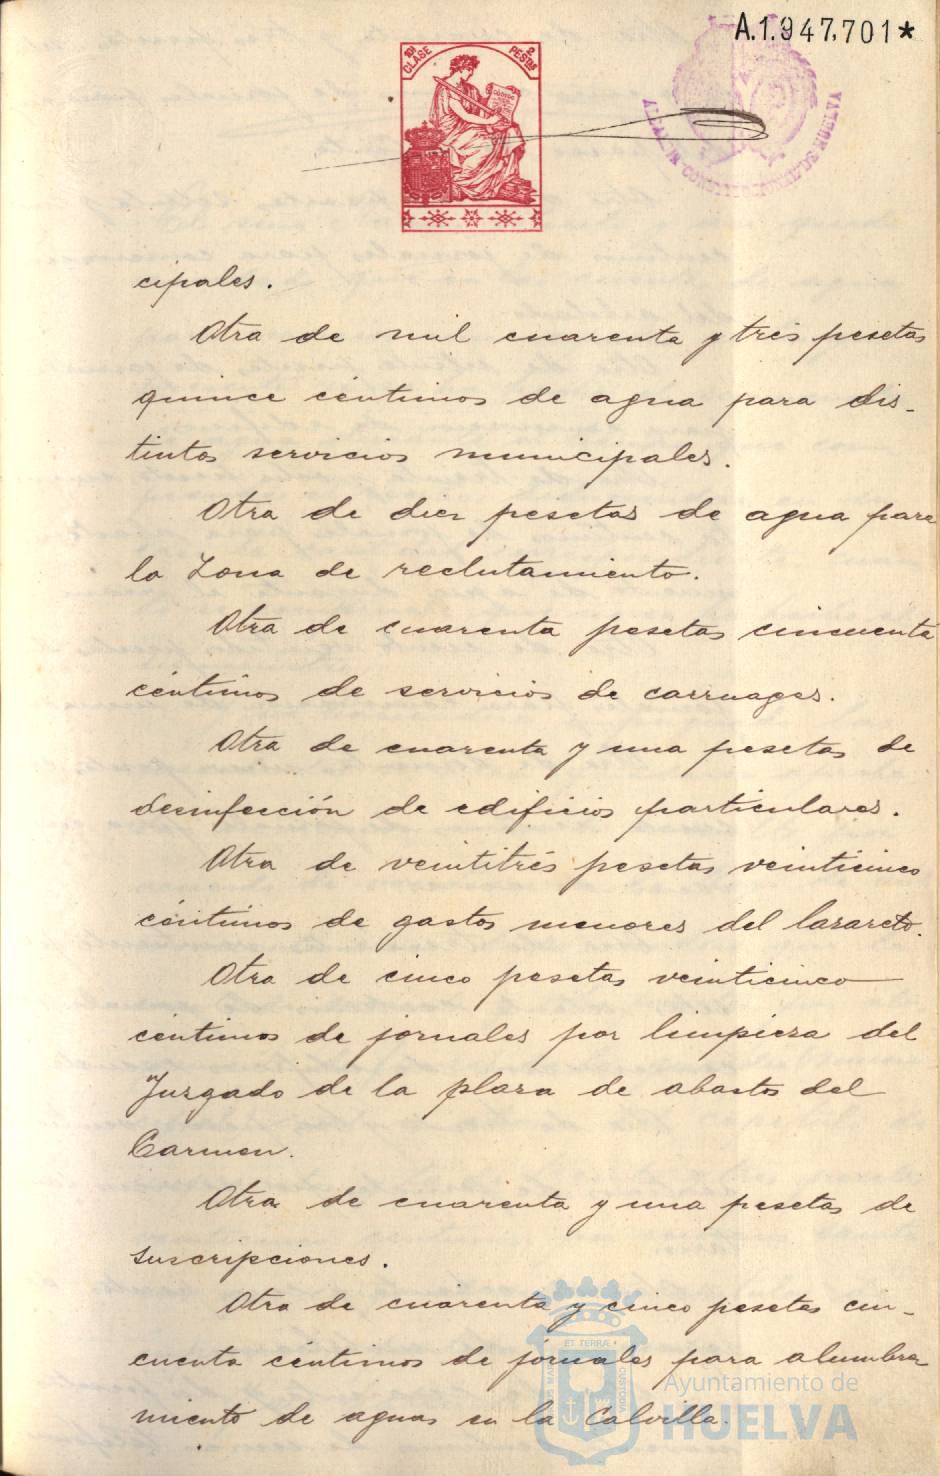 A.1.947,701*
10ª CLASE
2 PESTAS
cipales.
Otra de mil cuarenta y tres pesetas
quince céntimos de agua para dis-
tintos servicios municipales.
Otra de diez pesetas de agua para
la Zona de reclutamiento.
Otra de cuarenta pesetas cincuenta
céntimos de servicios de carruages.
Otra de cuarenta y una pesetas de
desinfección de edificios particulares.
Otra de veintitrés pesetas veinticinco
céntimos de gastos menores del lazareto.
Otra de cinco pesetas veinticinco
céntimos de jornales por limpieza del
Juzgado de la plaza de abastos del
Carmen.
Otra de cuarenta y una pesetas de
suscripciones.
Otra de cuarenta y cinco pesetas cin-
cuenta céntimos de jornales para alumbra-
miento de aguas en la Calvilla.
Ayuntamiento de
HUELVA